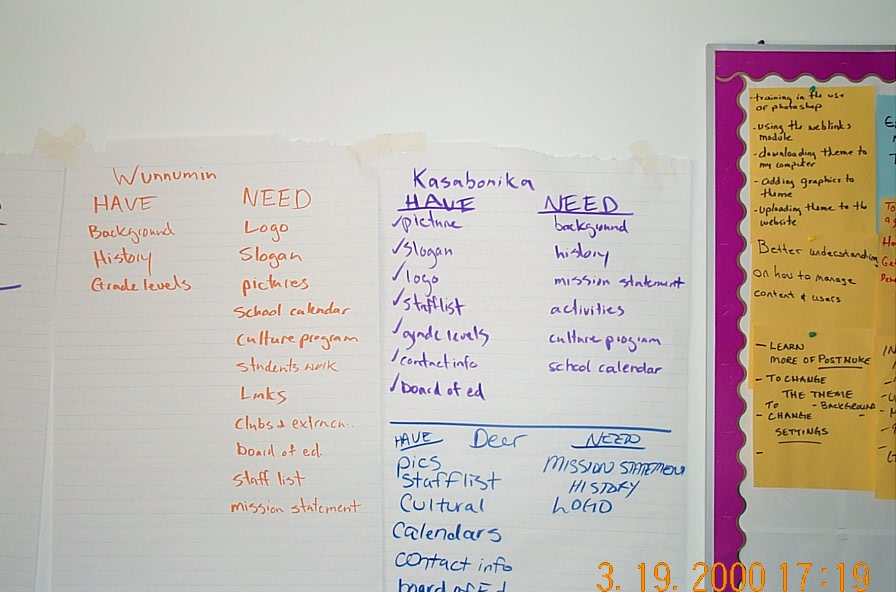 Wunnumin
HAVE
Background
History
Grade levels
NEED
Logo
Slogan
pictures
School calendar
Culture program
Students work
Links
Clubs &
board of ed.
Staff list
mission statement
Kasabonika
HAVE
✓picture
✓slogan
✓logo
✓staff list
✓grade levels
✓contact info
✓board of ed
NEED
background
history
mission statement
activities
culture program
school calendar
Deer
HAVE
pics
Staff list
Cultural
Calendars
contact info
board of Ed
NEED
MISSION STATEMENT
HISTORY
LOGO
- training in the use
of photoshop
- using the weblinks
module
- downloading theme to
my computer
- Adding graphics to
theme
- Uploading theme to the
website
Better understanding
on how to manage
content & users
- LEARN
MORE OF POSTNUKE
- TO CHANGE
THE THEME
TO - BACKGROUND
- CHANGE
SETTINGS
-
3. 19. 2000 17:19